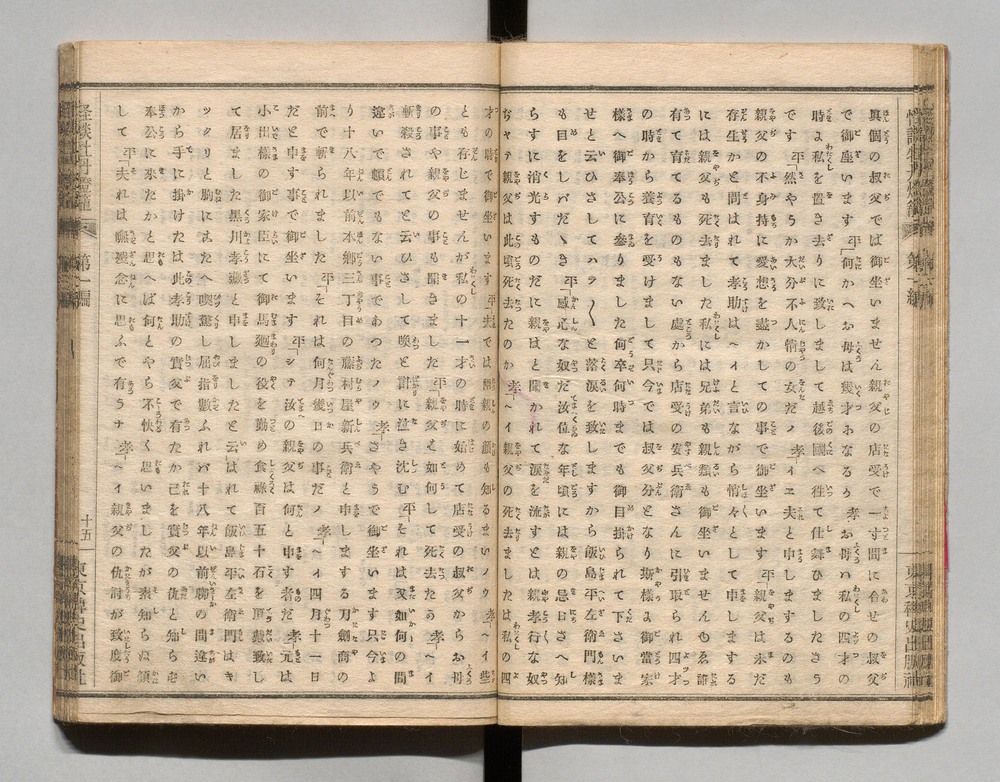 眞個の叔父でば御坐いません親父の店受で一寸間に合せの叔父
で御座います 平「何かへお母は幾才おなるう 孝「お母ハ私の四才の
時よ私を置き去りに致しまして越後國へ往て仕舞ひましたさう
です 平「然やうか大分不人情の女だノ 孝「イヱ夫と申しまするのも
親父の不身持に愛想を盡かしての事で御坐います 平「親父は未だ
存生かと問はれて孝助はヘイと言ながら悄々として申しまする
には親父も死去ました私には兄弟も親類も御坐いませんもゑ誰
有て育てるものもない處から店受の安兵衛さんに引取られ四才
の時から養育を受けまして只今では叔父分となり斯様よ御當家
樣へ御奉公に參りました何卒何時までも御目掛られて下さいま
せと云ひさしてハラ〱と落涙を致しますから飯島平左衛門樣
も目をしバだゝき 平「感心な奴だ汝位な年頃には親の忌日さへ知
らずに消光すものだに親はと聞かれて涙を流すとは親孝行な奴
ぢャテ親父は此頃死去たのか 孝「ヘイ親父の死去ましたは私の四
才の時で御坐います 平「夫では兩親の顔も知るまいノウ 孝「ヘイ些
とも存じませんが私の十一才の時に始めて店受の叔父からお母
の事や親父の事も聞きました 平「親父ハ如何して死去たう 孝「ヘイ
斬殺されてと云ひさして喚と計に泣き沈む 平「それは又如何の間
違いで頓でもない事であつたノウ 孝「さやうで御坐います只今よ
り十八年以前本郷三丁目の藤村屋新兵衛と申しまする刀劍商の
前で斬られました 平「それは何月幾日の事だノ 孝「ヘイ四月十一日
だと申す事で御坐います 平「シテ汝の親父は何と申す者だ 孝「元は
小出樣の御家臣にて御馬廻の役を勤め食祿百五十石を頂戴致し
て居ました黒川孝藏と申しましたと云はれて飯島平左衛門はき
ックリと胸にこたへ喫驚し屈指數ふれバ十八年以前聊の間違い
から手に掛けたは此孝助の實父で有たか己を實父の仇と知らず
奉公に來たかと思へば何とやら不快く思いましたが素知らぬ顔
して 平「夫れは嘸殘念に思ふで有うナ 孝「ヘイ親父の仇討が致度御
怪談牡丹燈籠 第二編
十五
東京稗史出版社